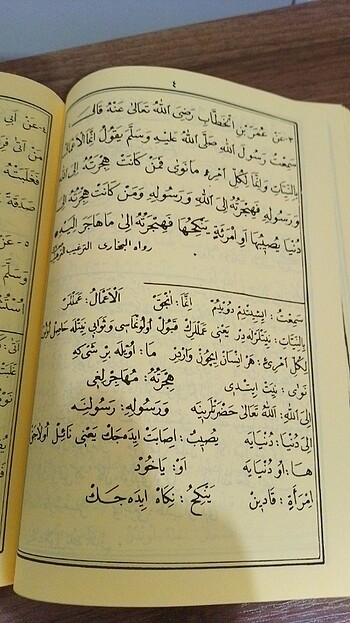 ٤
٣- عَنْ عُمَرَ بْنِ الْخَطَّابِ رَضِىَ اللّٰهُ تَعَالٰى عَنْهُ قَالَ
سَمِعْتُ رَسُولَ اللّٰهِ صَلَّى اللّٰهُ عَلَيْهِ وَسَلَّمَ يَقُولُ اِنَّمَا الْاَعْمَالُ
بِالنِّيَّاتِ وَاِنَّمَا لِكُلِّ امْرِءٍ مَا نَوٰى فَمَنْ كَانَتْ هِجْرَتُهُ اِلَى اللّٰهِ
وَرَسُولِهِ فَهِجْرَتُهُ اِلَى اللّٰهِ وَرَسُولِهِ وَمَنْ كَانَتْ هِجْرَتُهُ اِلٰى
دُنْيَا يُصِيبُهَا اَوِ امْرَأَةٍ يَنْكِحُهَا فَهِجْرَتُهُ اِلٰى مَا هَاجَرَ اِلَيْهِ
رواه البخارى الترغيب
سَمِعْتُ: اِيشِيتْدِمْ دُويْدُمْ اِنَّمَا: اَنْجَقْ اَلْاَعْمَالُ: عَمَللَرْ
بِالنِّيَّاتِ: نِيَّتْلَرْلَه دِرْ يَعْنِى عَمَللَرِكْ قَبُولْ اُولُونْمَاسِى وَثَوَابِى نِيَّتْلَه حَاصِلْ
لِكُلِّ امْرِئٍ: هَرْ اِنْسَانْ اِيچُونْ وَارْدِرْ مَا: اُويْلَه بِرْ شَىْ كه
نَوٰى: نِيَّتْ اِيتْدِى هِجْرَتُهُ: مُهَاجَرَتِى
اِلَى اللّٰهِ: اَللّٰهُ تَعَالٰى حَضْرَتْلَرِينَه وَرَسُولِهِ: رَسُولِنَه
اِلٰى دُنْيَا: دُنْيَايَه يُصِيبُ: اِصَابَتْ اِيدَه جَكْ يَعْنِى نَائِلْ
هَا: اُو دُنْيَايَه اَوْ: يَاخُودْ
اِمْرَأَةٍ: قَادِينْ يَنْكِحُ: نِكَاحْ اِيدَه جَكْ
٤- عَنْ اَبِى
مَنْ اَتٰى
صَدَقَةً
٥- عَنْ
وَسَلَّمَ